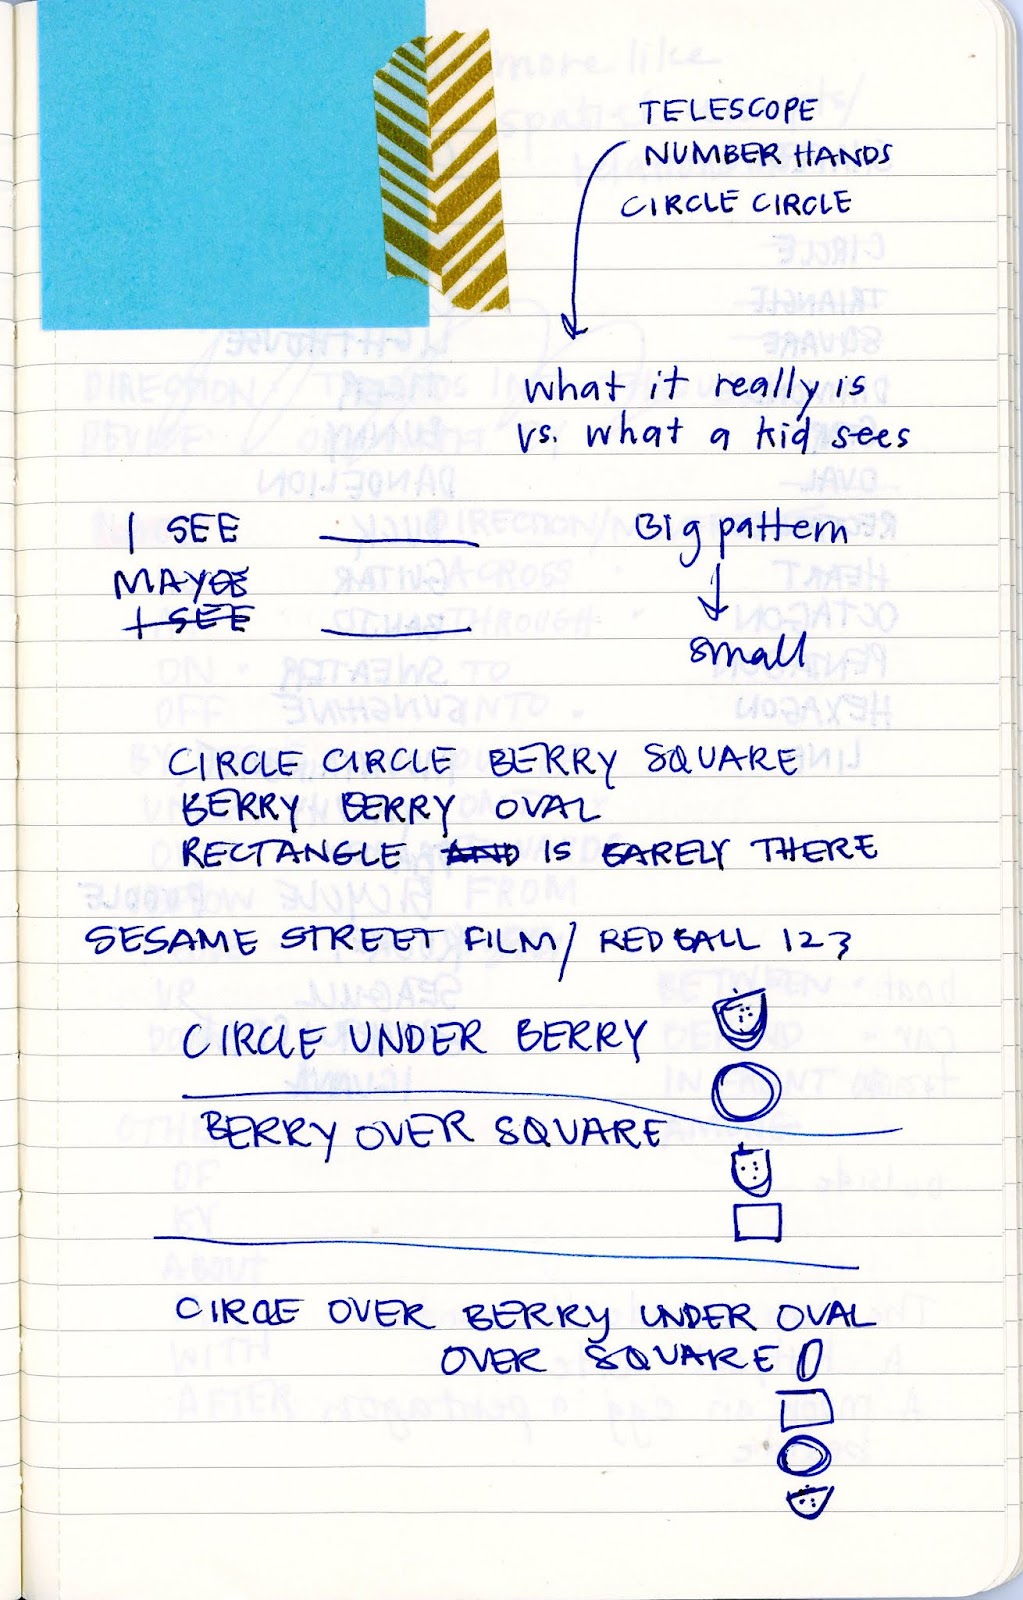 TELESCOPE
NUMBER HANDS
CIRCLE CIRCLE
what it really is
vs. what a kid sees
I SEE ________
MAYBE
I SEE ________
Big pattern
small
CIRCLE CIRCLE BERRY SQUARE
BERRY BERRY OVAL
RECTANGLE AND IS BARELY THERE
SESAME STREET FILM / RED BALL 123
CIRCLE UNDER BERRY
BERRY OVER SQUARE
CIRCLE OVER BERRY UNDER OVAL
OVER SQUARE